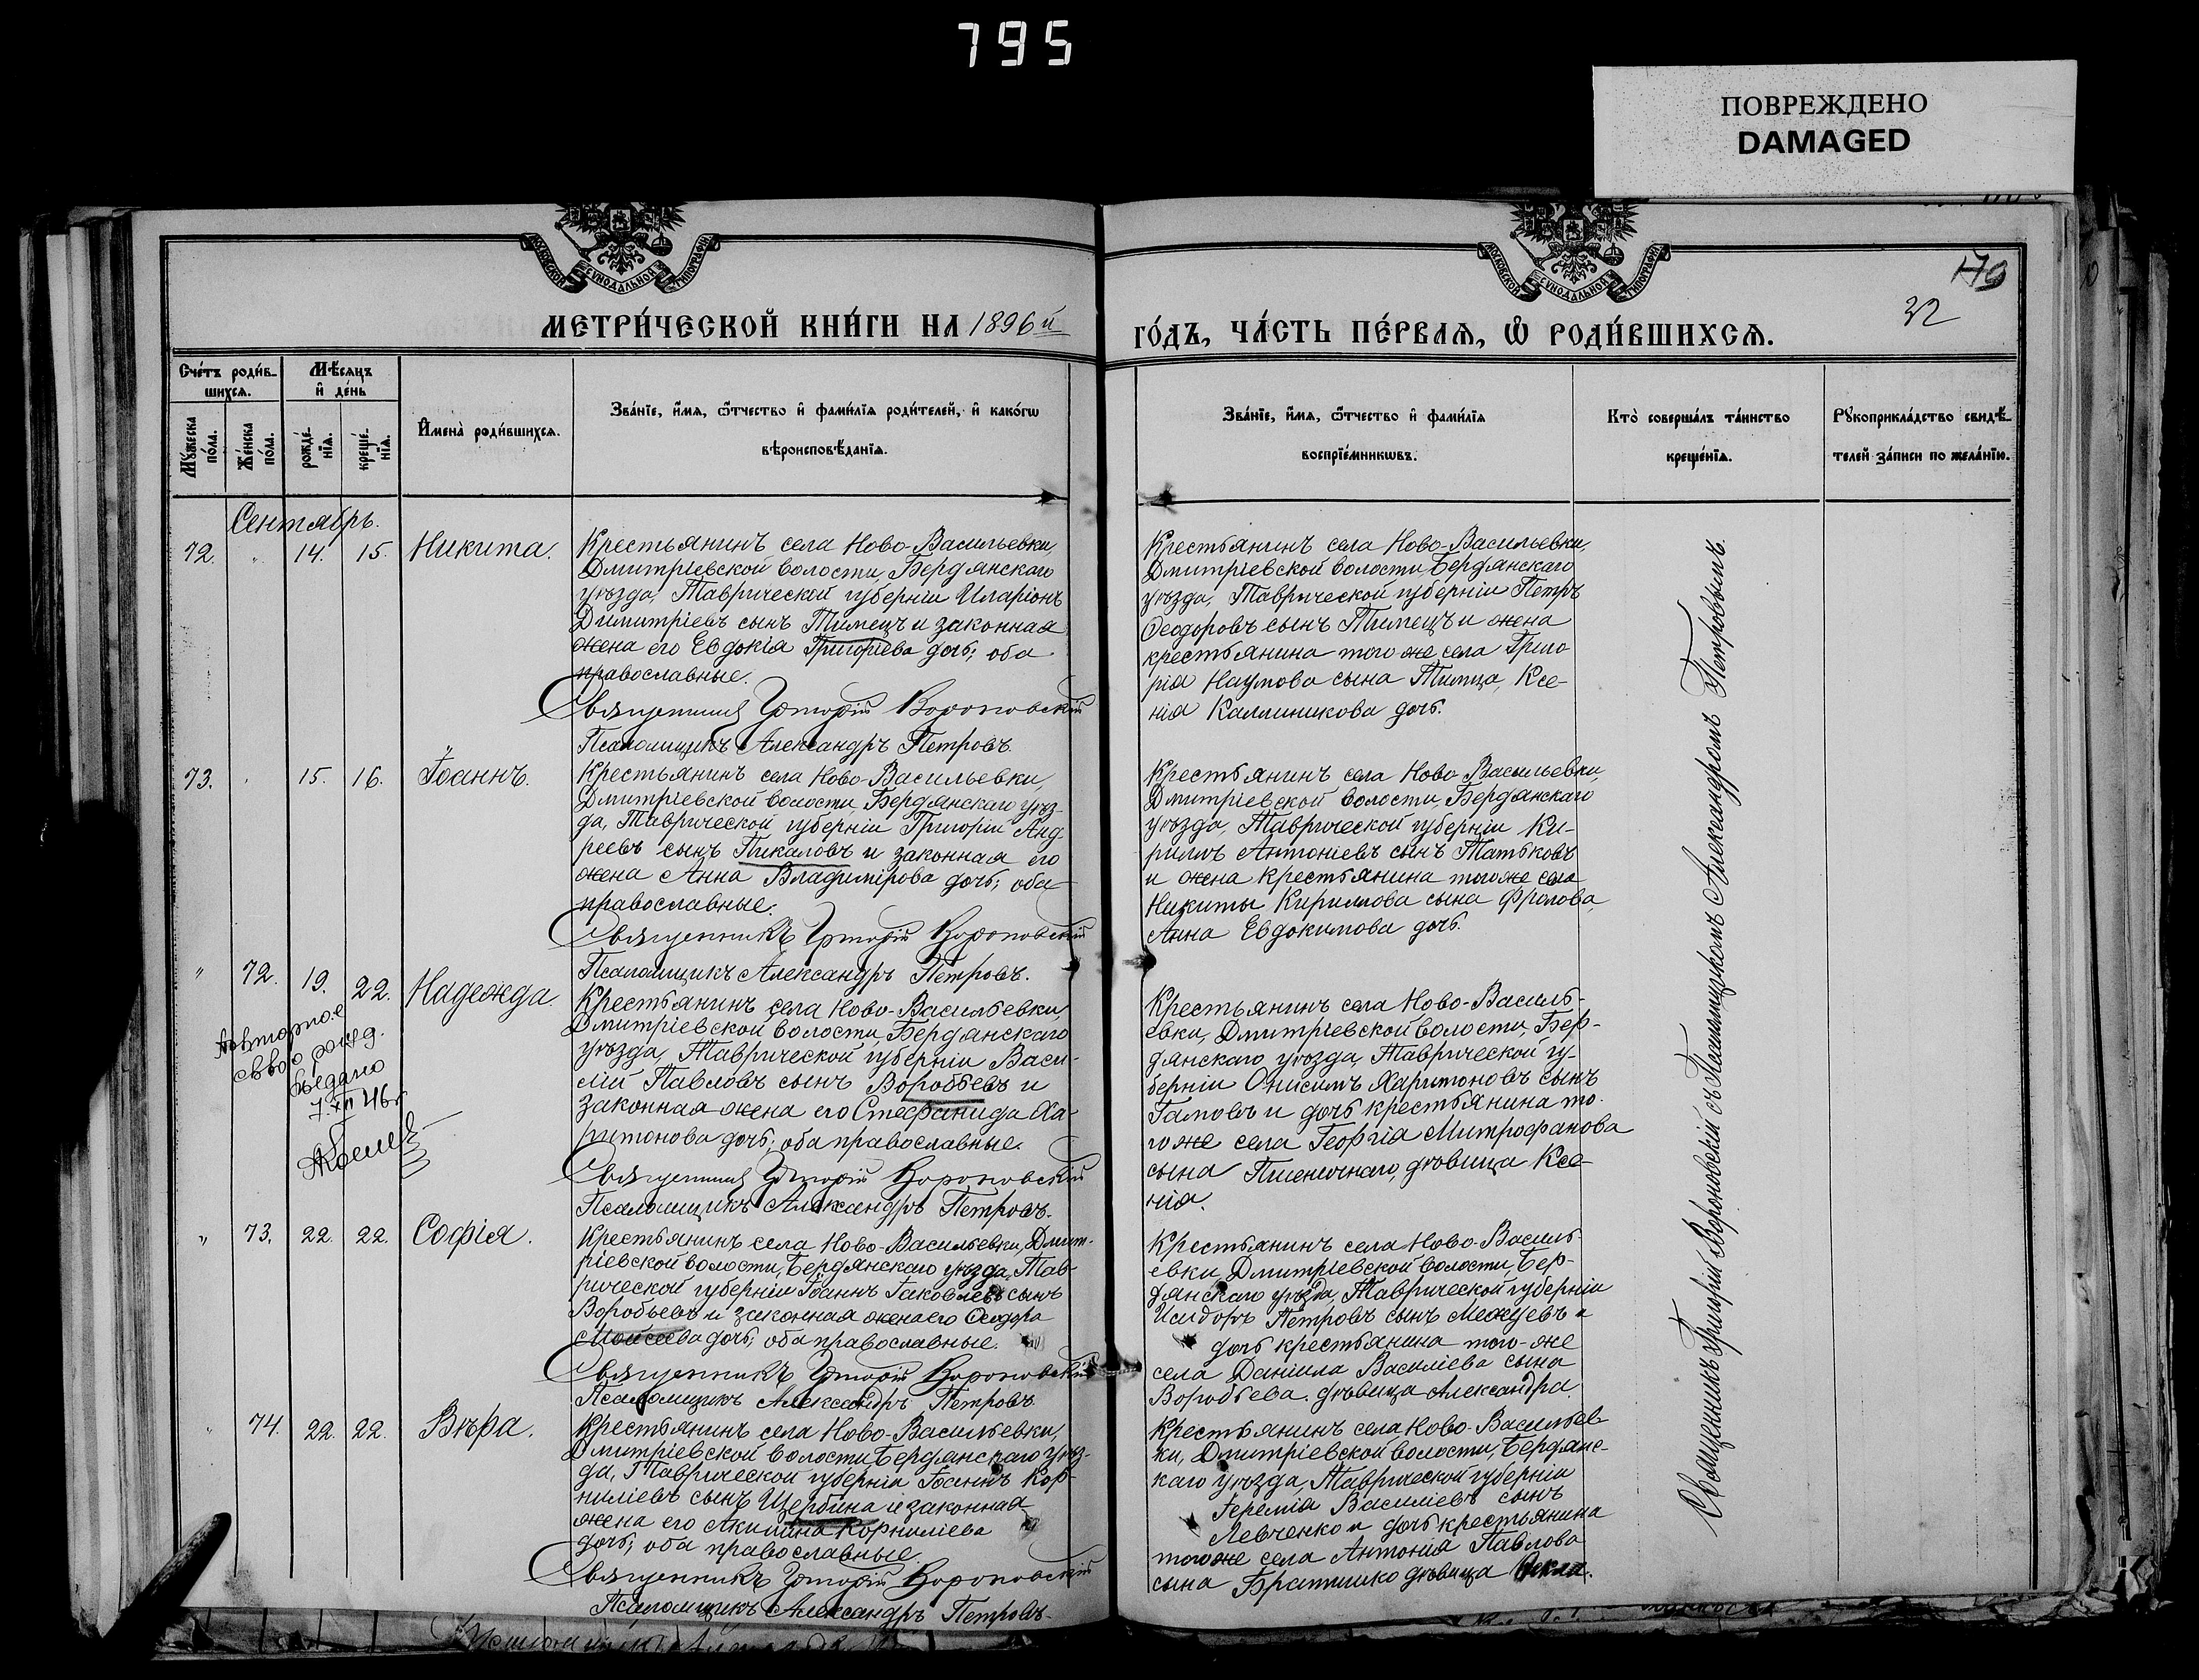 795
ПОВРЕЖДЕНО
DAMAGED
МОСКОВСКОЙ СУНОДАЛЬНОЙ ТИПОГРАФІИ
МОСКОВСКОЙ СУНОДАЛЬНОЙ ТИПОГРАФІИ
170
32
МЕТРИ́ЧЕСКОЙ КНИ́ГИ НА 1896й
ГО́ДЪ, ЧА́СТЬ ПЕ́РВАѦ, Ѡ҆ РОДИ́ВШИХСѦ.
Сче́тъ роди́в-
шихсѧ.
Мѣ́сѧцъ
и҆ де́нь
Мꙋ́жеска по́ла.
Же́нска по́ла.
рожде́-
нїѧ.
креще́-
нїѧ.
И҆мена̀ роди́вшихсѧ.
Зва́нїе, и҆́мѧ, ѿтчество и҆ фами́лїѧ роди́телей, и҆ како́гѡ
вѣроисповѣ́данїѧ.
Зва́нїе, и҆́мѧ, ѿтчество и҆ фами́лїѧ
воспрїе́мникѡвъ.
Кто̀ соверша́лъ та́инство
креще́нїѧ.
Рꙋкоприкла́дство свидѣ́-
телей за́писи по жела́нїю.
Сентябрь.
72. " 14. 15. Никита.
Крестьянинъ села Ново-Васильевки,
Дмитріевской волости, Бердянскаго
уѣзда, Таврической губерніи Иларіонъ
Димитріевъ сынъ Тимецъ и законная
жена его Евдокія Григоріева дочь; оба
православные.
Священникъ Григорій Вороновскій
Псаломщикъ Александръ Петровъ.
Крестьянинъ села Ново-Васильевки,
Дмитріевской волости, Бердянскаго
уѣзда, Таврической губерніи Петръ
Ѳеодоровъ сынъ Тимецъ и жена
крестьянина того же села Григо
рія Наумова сына Тимца, Ксе-
нія Каллиникова дочь.
73. " 15. 16. Іоаннъ.
Крестьянинъ села Ново-Васильевки,
Дмитріевской волости Бердянскаго уѣз-
да, Таврической губерніи Григорій Анд-
реевъ сынъ Пикаловъ и законная его
жена Анна Владимірова дочь; оба
православные.
Священникъ Григорій Вороновскій
Псаломщикъ Александръ Петровъ.
Крестьянинъ села Ново Васильевки,
Дмитріевской волости, Бердянскаго
уѣзда, Таврической губерніи Ки-
риллъ Антоніевъ сынъ Татьковъ
и жена крестьянина того же села
Никиты Кириллова сына Фролова,
Анна Евдокимова дочь.
" 72. 19. 22. Надежда.
Повторное
св во о рожд.
выдано
7. XII 46 г.
Крестьянинъ села Ново-Васильевки,
Дмитріевской волости, Бердянскаго
уѣзда, Таврической губерніи Васи-
лій Павловъ сынъ Воробьевъ и
законная жена его Стефанида Ха-
ритонова дочь; оба православные.
Священникъ Григорій Вороновскій
Псаломщикъ Александръ Петровъ.
Крестьянинъ села Ново-Василь-
евки, Дмитріевской волости, Бер-
дянскаго уѣзда, Таврической гу-
берніи Онисимъ Харитоновъ сынъ
Гамовъ и дочь крестьянина то-
го же села Георгія Митрофанова
сына Пшеничнаго, дѣвица Ксе-
нія.
" 73. 22. 22. Софія.
Крестьянинъ села Ново-Васильевки, Дмит-
ріевской волости, Бердянскаго уѣзда, Тав-
рической губерніи Іоаннъ Іаковлевъ сынъ
Воробьевъ и законная жена его Ѳеодора
Моисеева дочь; оба православные.
Священникъ Григорій Вороновскій
Псаломщикъ Александръ Петровъ
Крестьянинъ села Ново-Василь-
евки, Дмитріевской волости, Бер-
дянскаго уѣзда, Таврической губерніи
Исидоръ Петровъ сынъ Межуевъ и
дочь крестьянина того-же
села Даніила Василіева сына
Воробьева, дѣвица Александра.
" 74. 22. 22. Вѣра.
Крестьянинъ села Ново-Васильевки,
Дмитріевской волости, Бердянскаго уѣз-
да, Таврической губерніи Іоаннъ Кор-
ниліевъ сынъ Щербина и законная
жена его Акилина Корниліева
дочь; оба православные.
Священникъ Григорій Вороновскій
Псаломщикъ Александръ Петровъ.
Крестьянинъ села Ново-Васильев-
ки, Дмитріевской волости, Бердянс-
каго уѣзда, Таврической губерніи
Іеремія Василіевъ сынъ
Левченко и дочь крестьянина
того же села Антонія Павлова
сына Братишко дѣвица Ѳекла.
Священникъ Григорій Вороновскій съ Псаломщикомъ Александромъ Петровымъ.